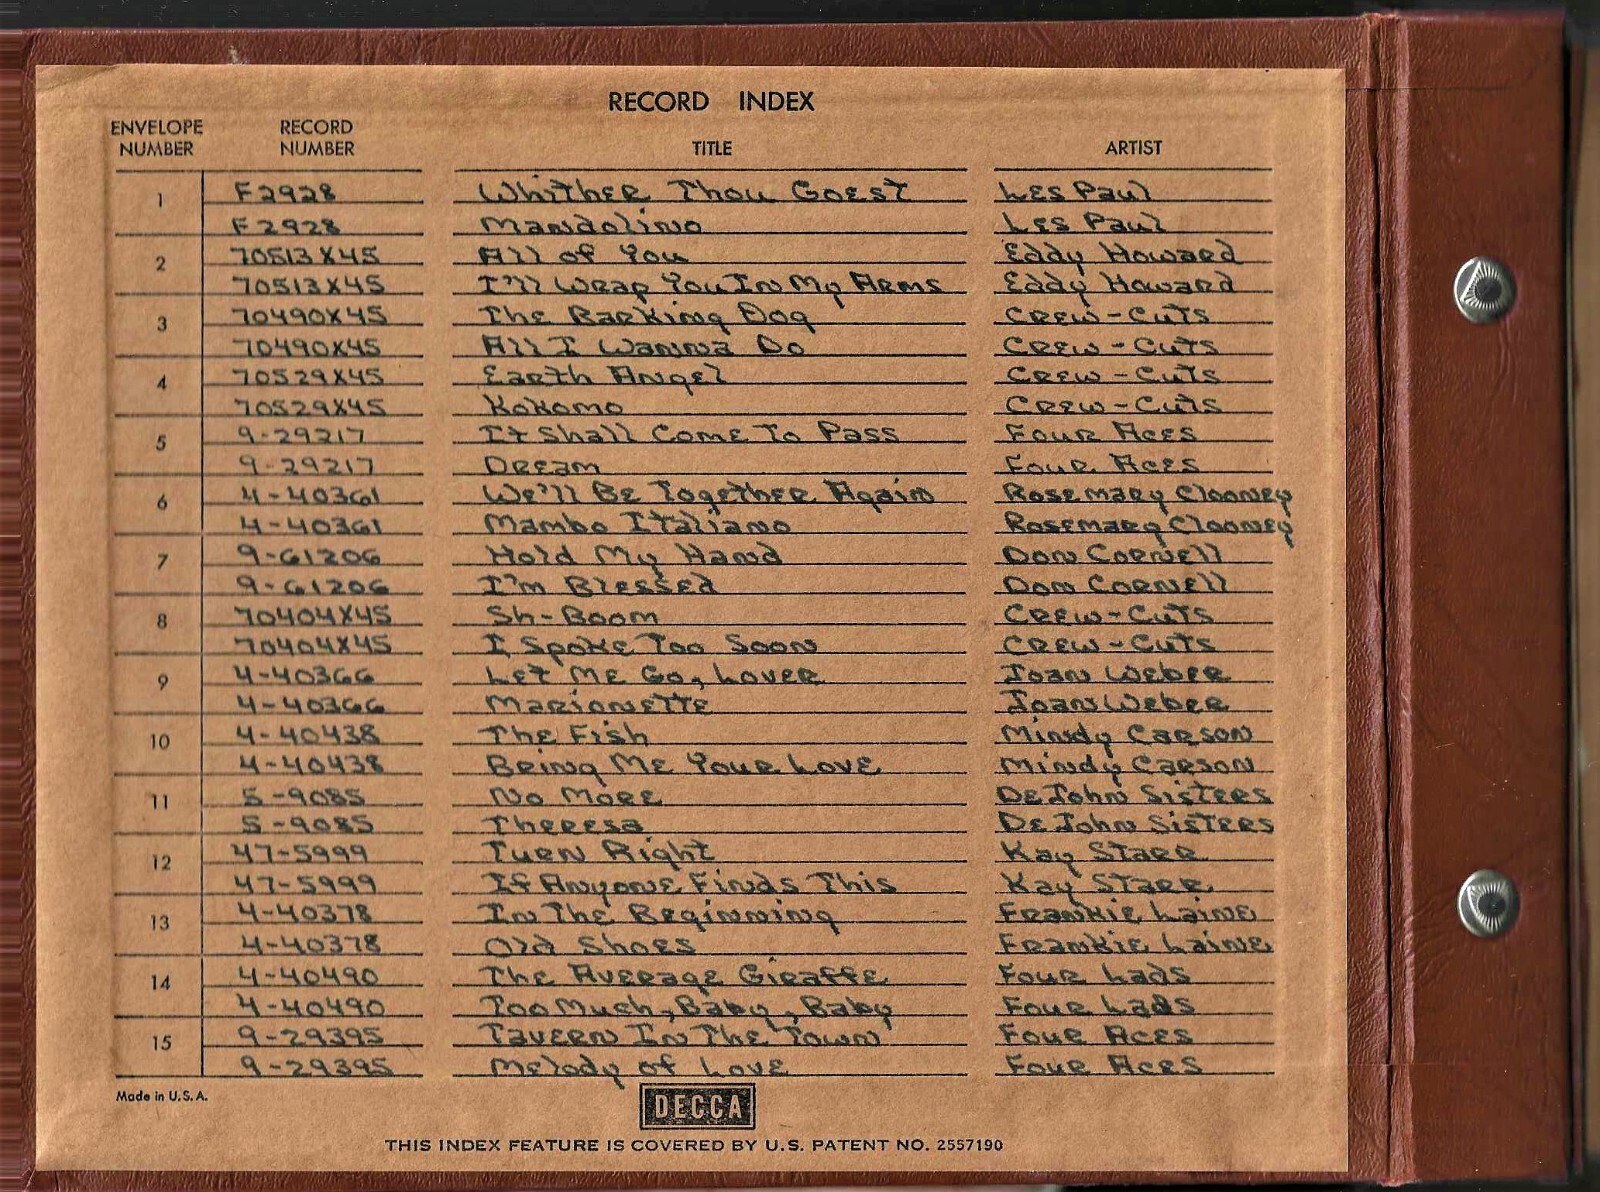 RECORD INDEX
ENVELOPE NUMBER RECORD NUMBER TITLE ARTIST
1 F2928 Whither Thou Goest Les Paul
F2928 Mandolino Les Paul
2 70513X45 All of You Eddy Howard
70513X45 I'll Wrap You In My Arms Eddy Howard
3 70490X45 The Barking Dog Crew-Cuts
70490X45 All I Wanna Do Crew-Cuts
4 70529X45 Earth Angel Crew-Cuts
70529X45 KoKomo Crew-Cuts
5 9-29217 It Shall Come To Pass Four Aces
9-29217 Dream Four Aces
6 4-40361 We'll Be Together Again Rosemary Clooney
4-40361 Mambo Italiano Rosemary Clooney
7 9-61206 Hold My Hand Don Cornell
9-61206 I'm Blessed Don Cornell
8 70404X45 Sh-Boom Crew-Cuts
70404X45 I Spoke Too Soon Crew-Cuts
9 4-40366 Let Me Go, Lover Joan Weber
4-40366 Marionette Joan Weber
10 4-40438 The Fish Mindy Carson
4-40438 Bring Me Your Love Mindy Carson
11 5-9085 No More DeJohn Sisters
5-9085 Theresa DeJohn Sisters
12 47-5999 Turn Right Kay Starr
47-5999 If Anyone Finds This Kay Starr
13 4-40378 In The Beginning Frankie Laine
4-40378 Old Shoes Frankie Laine
14 4-40490 The Average Giraffe Four Lads
4-40490 Too Much, Baby, Baby Four Lads
15 9-29395 Tavern In The Town Four Aces
9-29395 Melody of Love Four Aces
Made in U.S.A.
DECCA
THIS INDEX FEATURE IS COVERED BY U.S. PATENT NO. 2557190